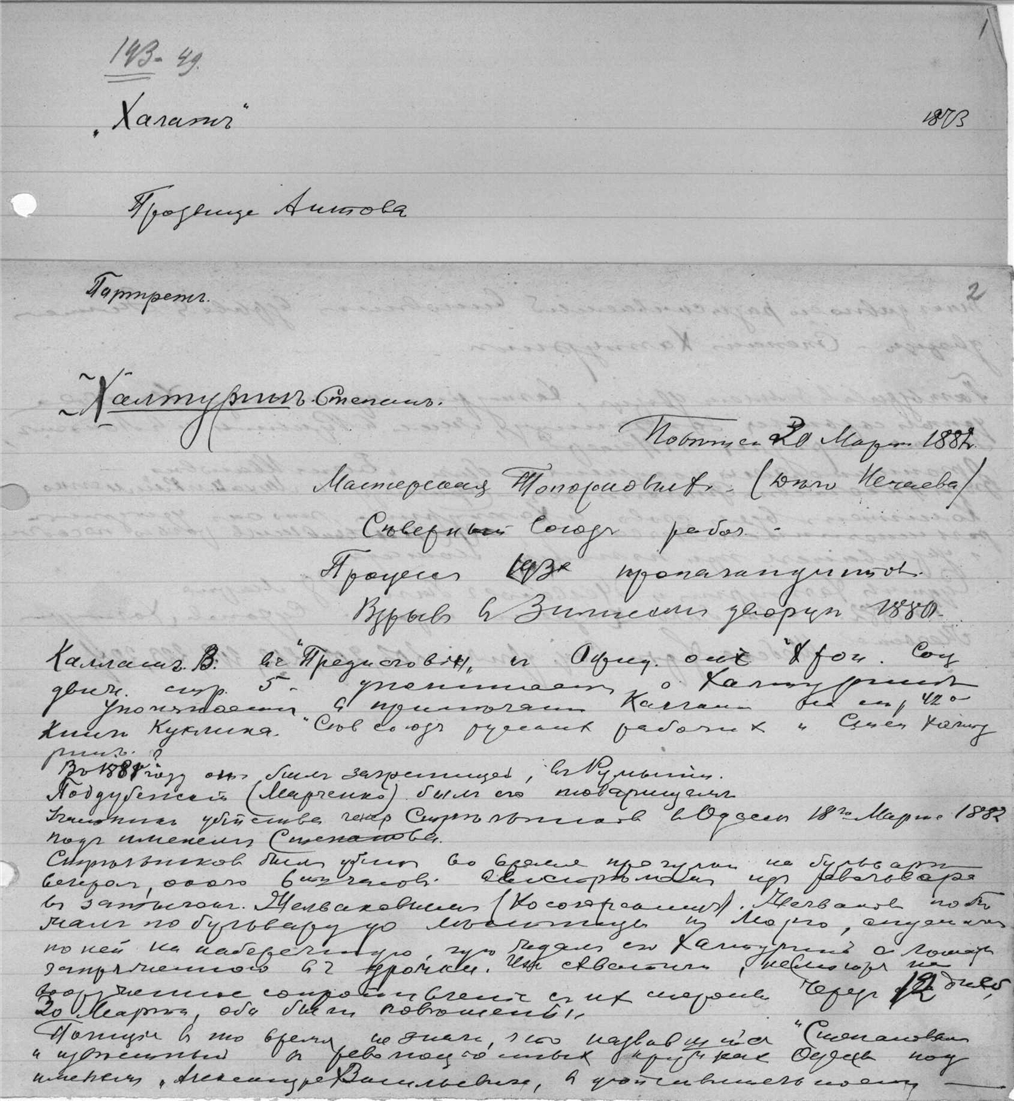 1
193 - 49.
„Халатъ"
1873
Прозвище Аитова
2
Портретъ.
Халтуринъ Степанъ.
Повѣшен 20 Март 1882
Мастерская Топорковыхъ. (дѣло Нечаева)
Сѣверный Союзъ рабоч.
Процессъ 193х пропагандистовъ.
Взрыв в Зимнем дворцѣ 1880.
Каллашъ В. въ "Предисловіи" к Офиц. Соц
движ. стр. 5 - упоминает о Халтуринѣ
Упоминается в примѣчаніи на стр. 42
Книги Куклина. "Сѣв Союзъ русских рабочихъ и Степ Халту
ринъ.
былъ заграницей, въ Румыніи.
Поддубенскій (Марченко) былъ его товарищемъ
Участникъ убійства ген Стрѣльникова въ Одессѣ 18го Марта 1882
подъ именемъ Степанова.
Стрѣльников был убит во время прогулки на бульварѣ
вечеромъ, около 6 часовъ выстрѣломъ изъ револьвера
въ затылок. Желваковымъ (Косогорскимъ). Желваков побѣ
жалъ по бульвару до лѣстницы к морю, спустился
по ней на набережную, гдѣ ждалъ его Халтуринъ с лошадью
запряженною въ дрожки. Их схватили, несмотря на
вооруженное сопротивленіе с их стороны. Через 12 дней,
20 Марта, оба были повѣшены.
Полиція в то время не знала, что назвавшійся "Степановым
и извѣстный в революціонных кружках Одессы под
именемъ „Александра Васильевича,